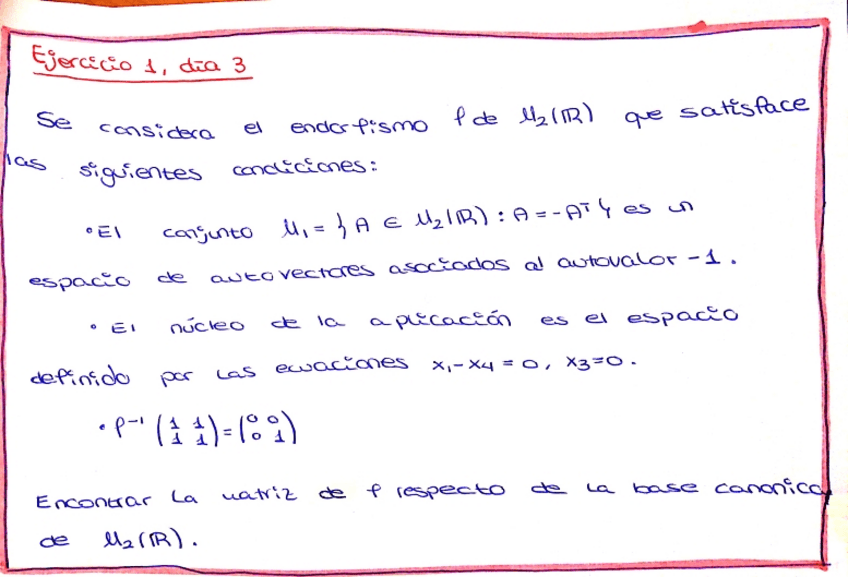 Ejercicio 1, día 3
Se considera el endorfismo f de M₂(ℝ) que satisface
las siguientes condiciones:
• El conjunto M₁ = { A ∈ M₂(ℝ) : A = -Aᵀ } es un
espacio de autovectores asociados al autovalor -1.
• El núcleo de la aplicación es el espacio
definido por las ecuaciones x₁-x₄ = 0, x₃=0.
• f⁻¹ (1 1 / 1 1) = (0 0 / 0 1)
Encontrar la matriz de f respecto de la base canonica
de M₂(ℝ).